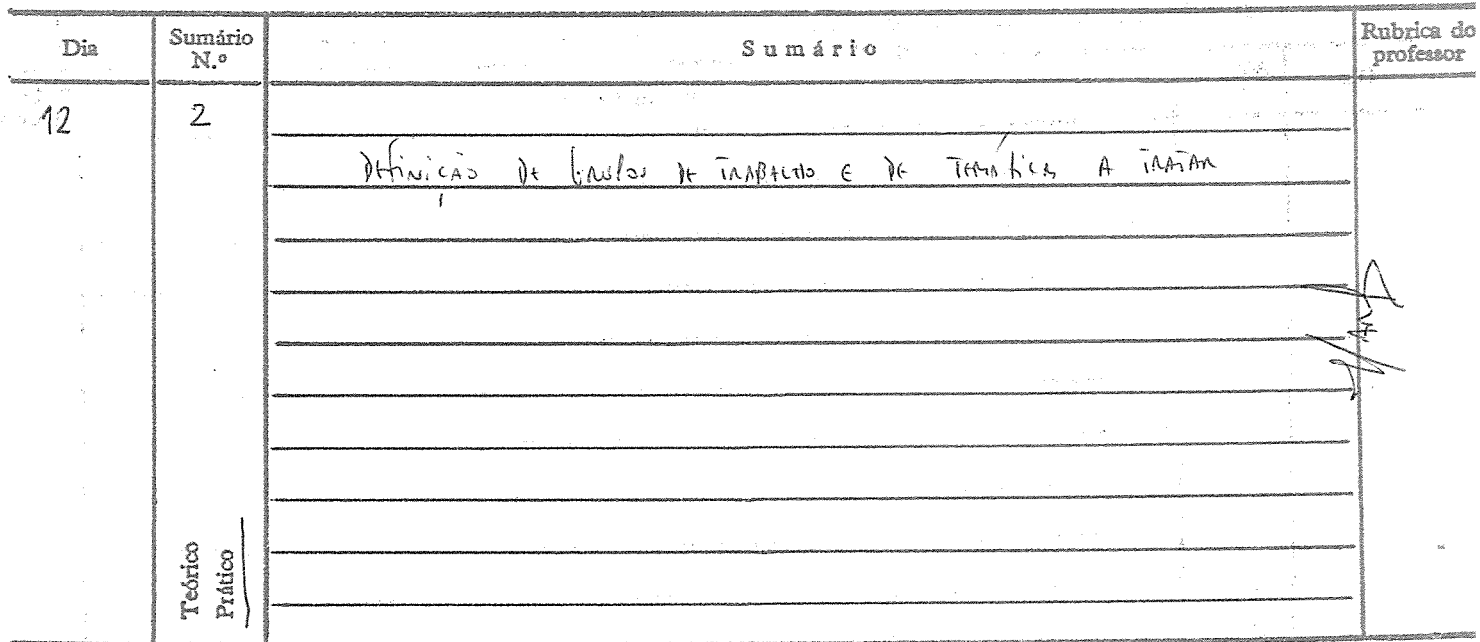 Dia
Sumário N.º
Sumário
Rubrica do professor
12
2
DEFINIÇÃO DE GRUPOS DE TRABALHO E DE TEMÁTICA A TRATAR
Teórico
Prático